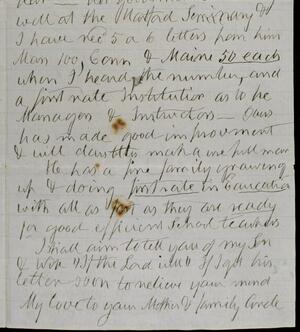 well at the Hartford Seminary &
I have rec 5 a 6 letters from him
Mass 100, Conn & Maine 50 each
when I heard the number, and
a first rate Institution as to he
Managers & Instructors — Ours
has made good improvement
& will doubtless make a
He has a fine family growing
up & doing first rate in Education
with all as fast as they are ready
for good efficient School teachers
I shall aim to tell you of my Son
& Wife "If the Lord will" If I get his
letter soon to relieve your mind
My Love to your Mother & family, Uncle